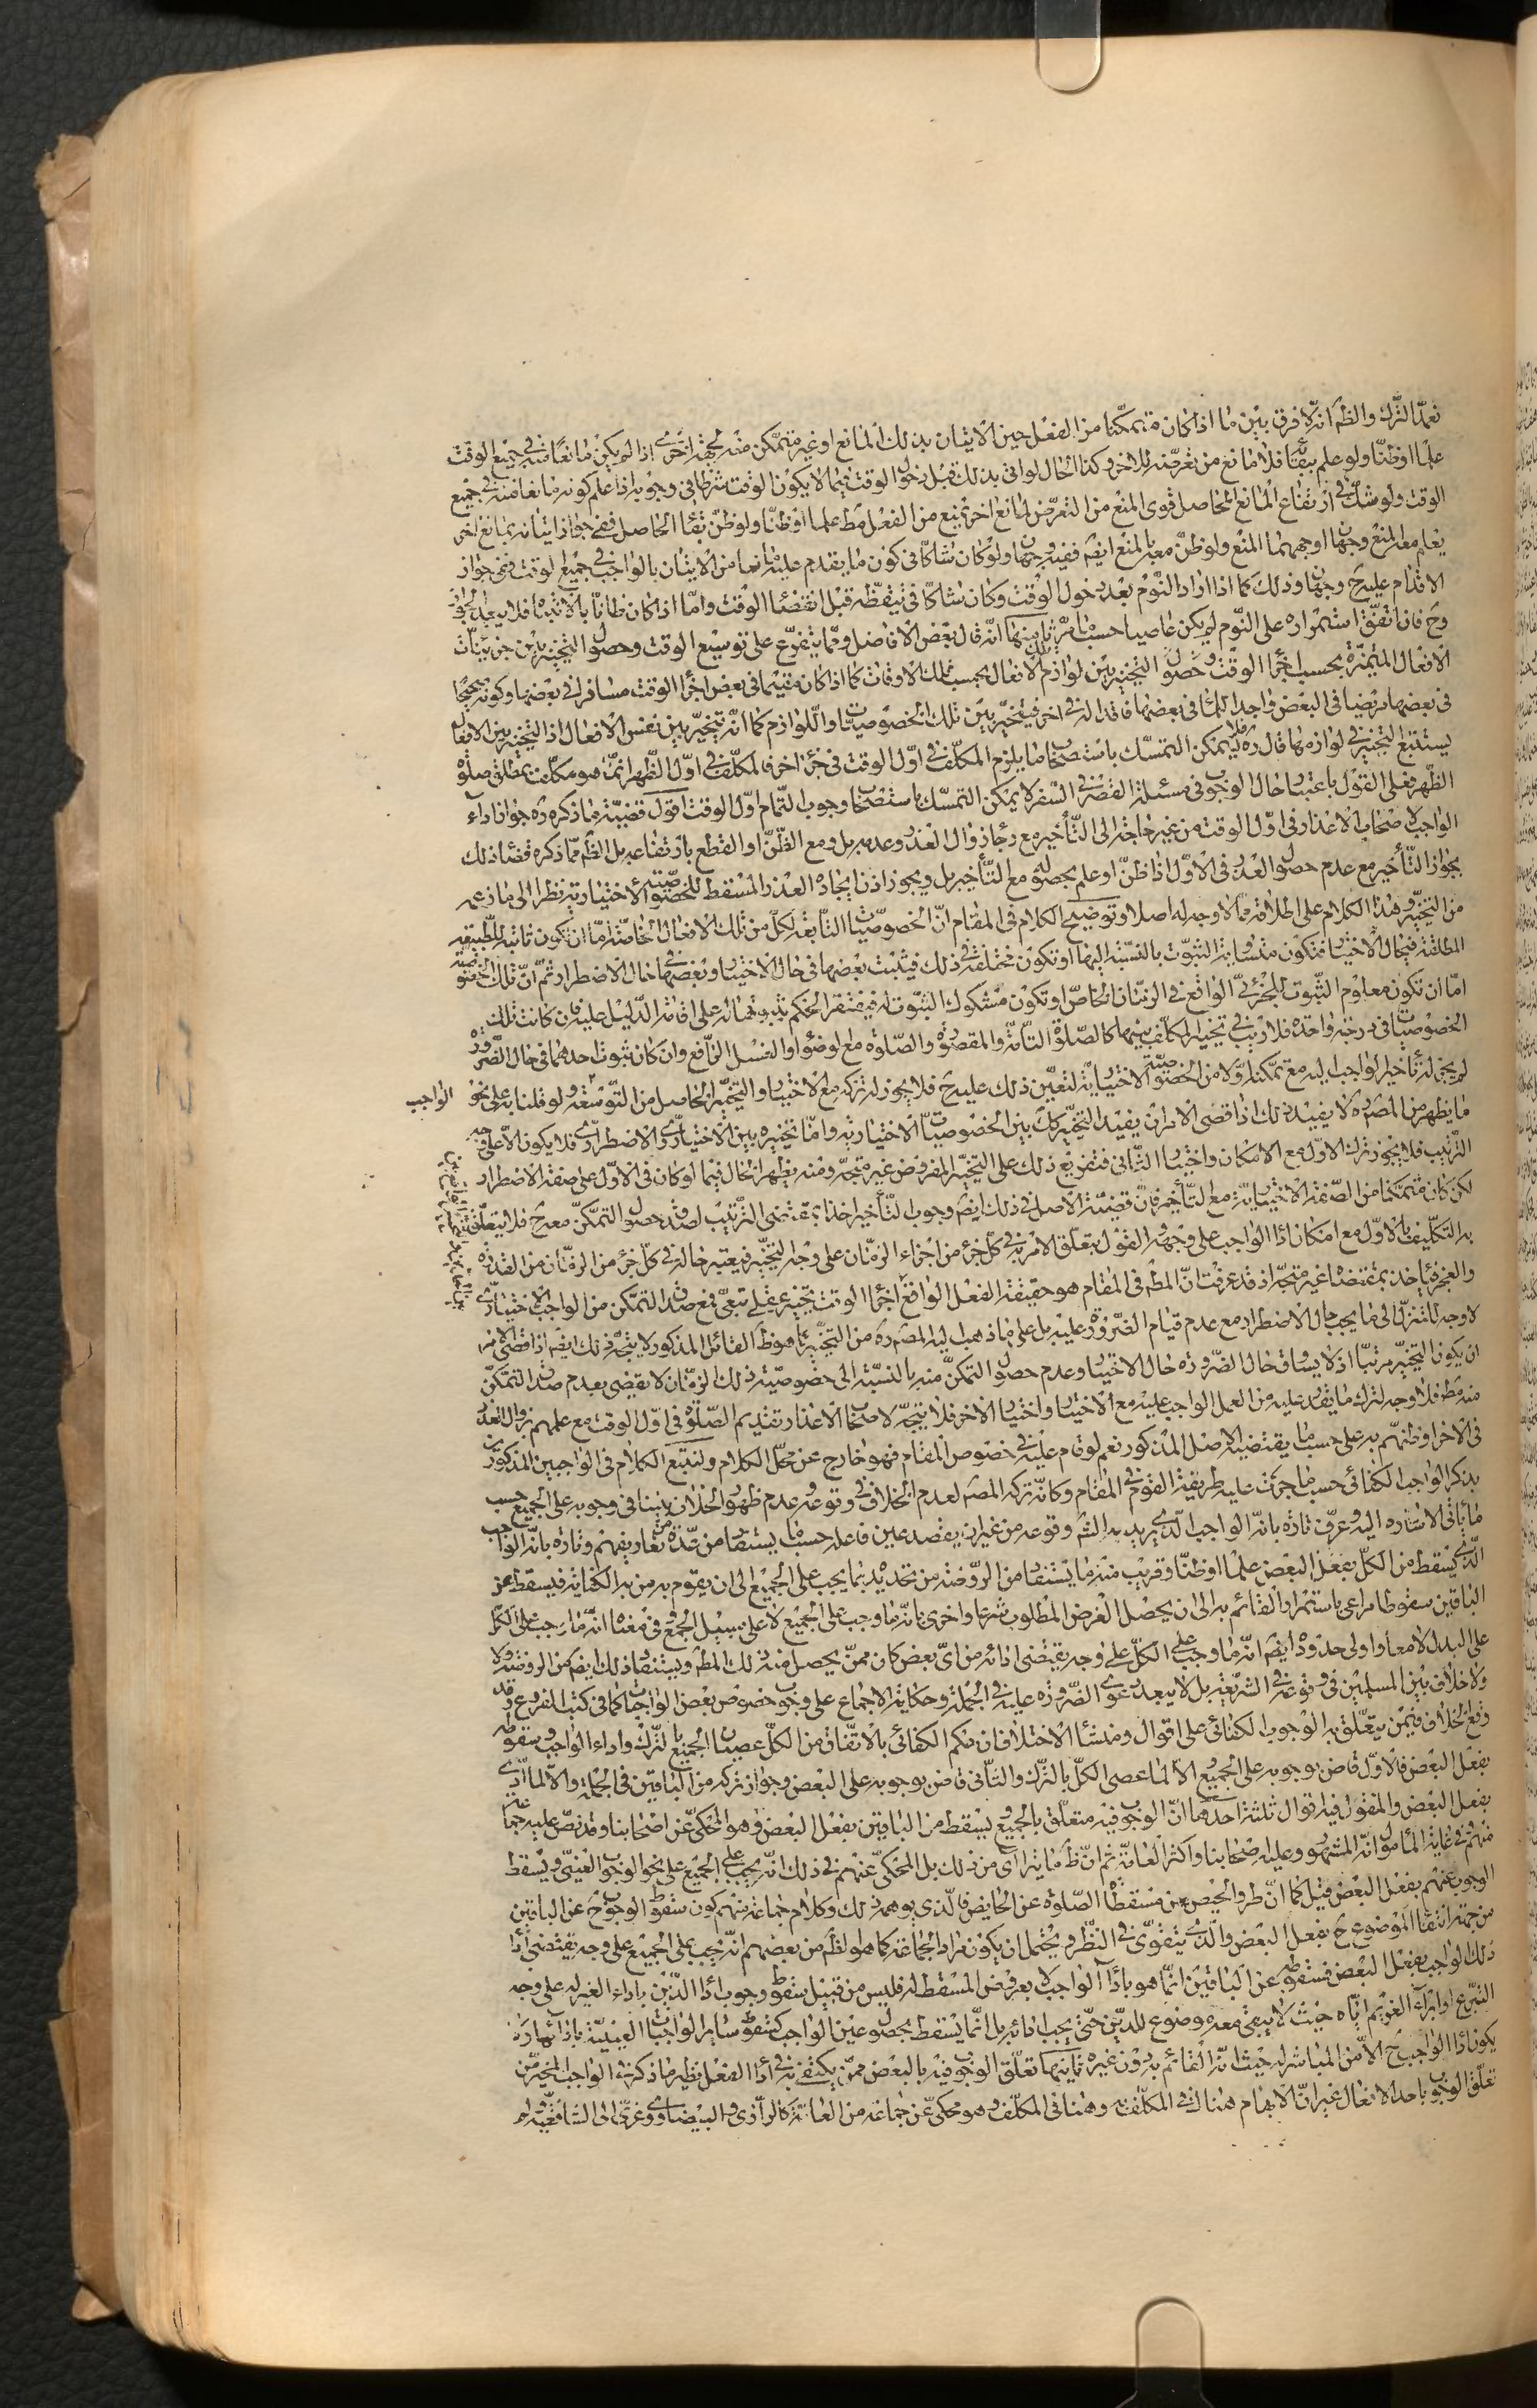 تعمد الترك والظم انه لا فرق بين ما اذا كان متمكنا من الفعل حين الاتيان بذلك المانع او غير متمكن منه لجهة اخرى اذا لم يكن مانعا منه في جميع الوقت
علما او ظنا ولو علم ببقائه فلا مانع من تعرضه للاخر وكذا الحال لو اتى بذلك قبل دخول الوقت فيما لا يكون الوقت شرطا في وجوبه اذا علم كونه مانعا منه في جميع
الوقت ولو شك في ارتفاع المانع الحاصل قوى المنع من التعرض لمانع اخر يمنع من الفعل مط علما او ظنا ولو ظن بقاء الحاصل ففي جواز اتيانه بمانع اخر
يعلم معه المنع وجهان اوجههما المنع ولو ظن معه بالمنع ايضم ففيه وجهان ولو كان شاكا في كون ما يقدم عليه مانعا من الاتيان بالواجب في جميع الوقت ففي جواز
الاقدام عليه ح وجهان وذلك كما اذا اراد النوم بعد دخول الوقت وكان شاكا في تيقظه قبل انقضاء الوقت واما اذا كان ظانا بالانتباه فلا يبعد الجواز
وح فان اتفق استمراره على النوم لم يكن عاصيا حسب ما مر ثامنها انه قال بعض الافاضل ومما يتفرع على توسيع الوقت وحصول التخيير بين جزئيات
الافعال المتميزة بحسب اجزاء الوقت وحصول التخيير بين لوازم تلك الافعال بحسب تلك الاوقات كما اذا كان مقيما في بعض اجزاء الوقت مسافرا في بعضها وكونه صحيحا
في بعضها مريضا في البعض واجدا للماء في بعضها فاقدا له في اخر فيتخير بين تلك الخصوصيات او اللوازم كما انه يتخير بين نفس الافعال اذ التخيير بين الافعال
يستتبع التخيير في لوازمها قال ره فلا يمكن التمسك باستصحاب ما يلزم المكلف في اول الوقت في جزء اخر فالمكلف في اول الظهر انما هو مكلف بمطلق صلوة
الظهر فعلى القول باعتبار حال الوجوب في مسئلة القصر في السفر لا يمكن التمسك باستصحاب وجوب التمام اول الوقت اقول قضية ما ذكره ره جواز اداء
الواجب لاصحاب الاعذار في اول الوقت من غير حاجة الى التأخير مع رجاء زوال العذر وعدمه بل ومع الظن او القطع بارتفاعه بل الظم مما ذكره قضاء ذلك
بجواز التأخير مع عدم حصول العذر في الاول اذا ظن او علم بحصوله مع التأخير بل ويجوز اذن ايجاد العذر المسقط للخصوصية الاختيارية نظرا الى ما زعمه
من التخيير وهذا الكلام على اطلاقه مما لا وجه له اصلا وتوضيح الكلام في المقام ان الخصوصيات التابعة لكل من تلك الافعال الخاصة اما ان تكون ثابتة للطبيعة
المطلقة في حال الاختيار فتكون متساوية الثبوت بالنسبة اليها او تكون مختلفة في ذلك فيثبت بعضها في حال الاختيار وبعضها في حال الاضطرار وثم ان تلك الخصوصية
اما ان تكون معلوم الثبوت للجزئي الواقع في الزمان الخاص او تكون مشكوك الثبوت له فيفتقر الحكم بثبوتها له على اقامة الدليل عليه فان كانت تلك
الخصوصيات في درجة واحدة فلا ريب في تخيير المكلف بينهما كالصلوة التامة والمقصورة والصلوة مع الوضوء او الغسل الرافع وان كان ثبوت احدهما في حال الضرورة
لم يجز له تأخير الواجب اليه مع تمكنه اولا من الخصوصية الاختيارية لتعين ذلك عليه ح فلا يجوز له تركه مع الاختيار والتخيير الحاصل من التوسعة ولو قلنا به على نحو الواجب
ما يظهر من المصنف ره لا يفيد ذلك اذ اقصى الامر ان يفيد التخيير كك بين الخصوصيات الاختيارية واما تخييره بين الاختياري والاضطراري فلا يكون الا على وجه
الترتيب فلا يجوز ترك الاول مع الامكان واختيار الثاني فتفريع ذلك على التخيير المفروض غير متجه ومنه يظهر الحال فيما لو كان في الاول على صفة الاضطرار
لكن كان متمكنا من الصفة الاختيارية مع التأخير فان قضية الاصل في ذلك ايضم وجوب التأخير اخذا بمقتضى الترتيب لصدق حصول التمكن معه ح فلا يتعلق
به التكليف بالاول مع امكان اداء الواجب على وجهه والقول بتعلق الامر به في كل جزء من اجزاء الزمان على وجه التخيير فيعتبر حاله في كل جزء من الزمان من القدرة
والعجز فيأخذ بمقتضاه غير متجه اذ قد عرفت ان المطم في المقام هو حقيقة الفعل الواقع في اجزاء الوقت بتخيير عقلي تبعي فمع صدق التمكن من الواجب الاختياري
لا وجه للتنزل الى ما يجب حال الاضطرار مع عدم قيام الضرورة عليه بل على ما ذهب اليه المصنف ره من التخيير كما هو ظ القائل المذكور لا يتجه ذلك ايضم اذ اقصى الامر
ان يكون التخيير مرتبا اذ لا يساوق حال الضرورة حال الاختيار وعدم حصول التمكن منه بالنسبة الى خصوصية ذلك الزمان لا يقضي بعدم صدق التمكن
منه مط فلا وجه لترك ما يقدر عليه من العمل الواجب عليه مع الاختيار واختيار الاخر فلا يتجه لاصحاب الاعذار تقديم الصلوة في اول الوقت مع علمهم بزوال العذر
في الاخر او ظنهم به على حسب ما يقتضيه الاصل المذكور نعم لو قام عليه في خصوص المقام فهو خارج عن محل الكلام ولنتبع الكلام في الواجبين المذكورين
بذكر الواجب الكفائي حسب ما جرت عليه طريقة القوم في المقام وكانه تركه المصنف لعدم الخلاف في وقوعه وعدم ظهور الخلاف بيننا في وجوبه على الجميع حسب
ما يأتي الاشارة اليه وعرف تارة بانه الواجب الذي يريد به الشم وقوعه من غير ان يقصد عين فاعله حسب ما يستفاد من عدة من تعاريفهم وتارة بانه الواجب
الذي يسقط من الكل بفعل البعض علما او ظنا وقريب منه ما يستفاد من الروضة من تحديده بما يجب على الجميع الى ان يقوم به من به الكفاية فيسقط عن
الباقين سقوطا مراعى باستمرار القائم به الى ان يحصل الغرض المطلوب شرعا واخرى بانه ما وجب على الجميع لا على سبيل الجمع وفي معناه انه ما وجب على الكل
على البدل لا معا واولى حدوده ايضم انه ما وجب على الكل على وجه يقتضي ادائه من اي بعض كان ممن يحصل منه ذلك المطم ويستفاد ذلك ايضم من الروضة ولا
ولا خلاف بين المسلمين في وقوعه في الشريعة بل لا يبعد دعوى الضرورة عليه في الجملة وحكاية الاجماع على وجوب خصوص بعض الواجبات كما في كتب الفروع وقد
وقع الخلاف فيمن يتعلق به الوجوب الكفائي على اقوال ومنشأ الاختلاف ان حكم الكفائي بالاتفاق من الكل عصيان الجميع بالترك واداء الواجب وسقوطه
بفعل البعض فالاول قاض بوجوبه على الجميع والا لما عصى الكل بالترك والثاني قاض بوجوبه على البعض وجواز تركه من الباقين في الجملة والا لما ادى
بفعل البعض والمنقول فيه اقوال ثلثة احدها ان الوجوب فيه متعلق بالجميع ويسقط من الباقين بفعل البعض وهو المحكي عن اصحابنا وقد نص عليه جماعة
منهم وفي غاية المأمول انه المشهور وعليه اصحابنا واكثر العامة ثم ان ظ ما يتراءى من ذلك بل المحكي عنهم في ذلك انه يجب على الجميع على نحو الوجوب العيني ويسقط
الوجوب عنهم بفعل البعض قيل كما ان طرو الحيض مسقط الصلوة عن الحايض فالذي يوهمه ذلك وكلام جماعة منهم كون سقوط الوجوب ح عن الباقين
من جهة انتفاء الموضوع ح بفعل البعض والذي يتقوى في النظر ويحتمل ان يكون مراد الجماعة كما هو الظم من بعضهم انه يجب على الجميع على وجه يقتضي اداء
ذلك الواجب بفعل البعض فسقوطه عن الباقين انما هو باداء الواجب لا بعروض المسقط له فليس من قبيل سقوط وجوب اداء الدين باداء الغير له على وجه
التبرع او ابراء الغريم اياه حيث لا يبقى معه موضوع للدين حتى يجب ادائه بل انما يسقط بحصول عين الواجب كسقوط سائر الواجبات العينية بادائها اذ
يكون اداء الواجب ح الا من المباشر له حيث انه القائم به دون غيره ثانيها تعلق الوجوب فيه بالبعض ممن يكتفى به في اداء الفعل نظير ما ذكر في الواجب المخير من
تعلق الوجوب باحد الافعال غير ان الابهام هناك في المكلف به وهنا في المكلف وهو محكي عن جماعة من العامة كالرازي والبيضاوي وعزى الى الشافعية